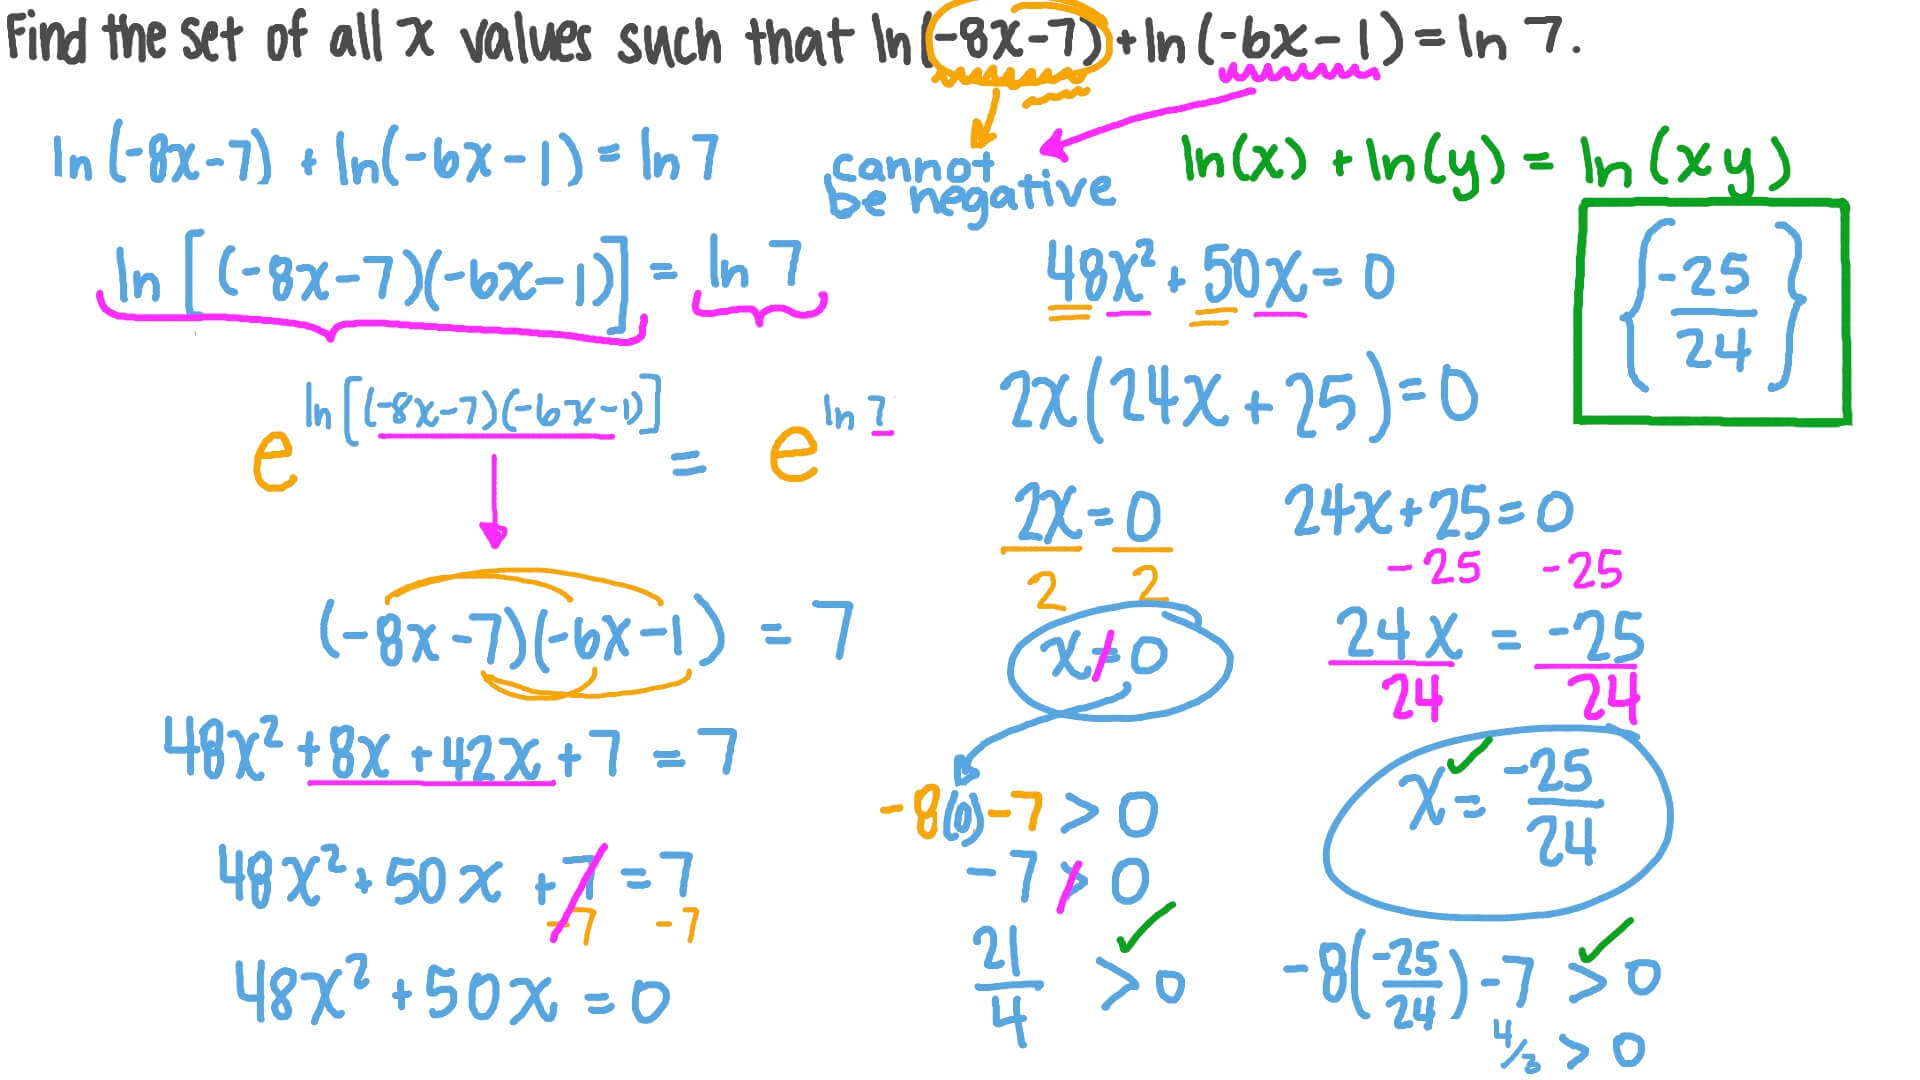 Find the set of all x values such that ln(-8x-7)+ln(-6x-1)=ln 7.
ln(-8x-7) + ln(-6x-1) = ln 7
cannot
be negative
ln(x) + ln(y) = ln(xy)
ln[(-8x-7)(-6x-1)] = ln 7
e^ln[(-8x-7)(-6x-1)] = e^ln 7
(-8x-7)(-6x-1) = 7
48x² +8x + 42x +7 = 7
48x² + 50x +7 = 7
-7 -7
48x² + 50x = 0
48x² + 50x = 0
2x(24x + 25) = 0
2x = 0
2 2
x = 0
-8(0)-7 > 0
-7 > 0
21/4 > 0
24x+25=0
-25 -25
24x = -25
24 24
x = -25/24
-8(-25/24) -7 > 0
4/3 > 0
{-25/24}